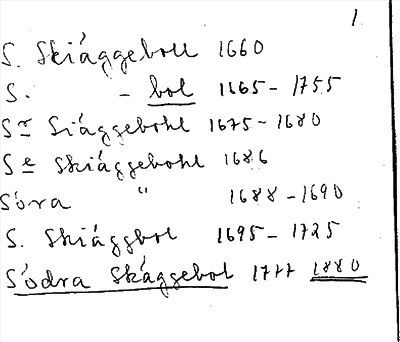 1
S. Skiäggeboll 1660
S. - bol 1665 - 1755
Sr Siäggebohl 1675 - 1680
Se Skiäggebohl 1686
Söra " 1688 - 1690
S. Skiäggbol 1695 - 1725
Södra Skäggebol 1777 1880